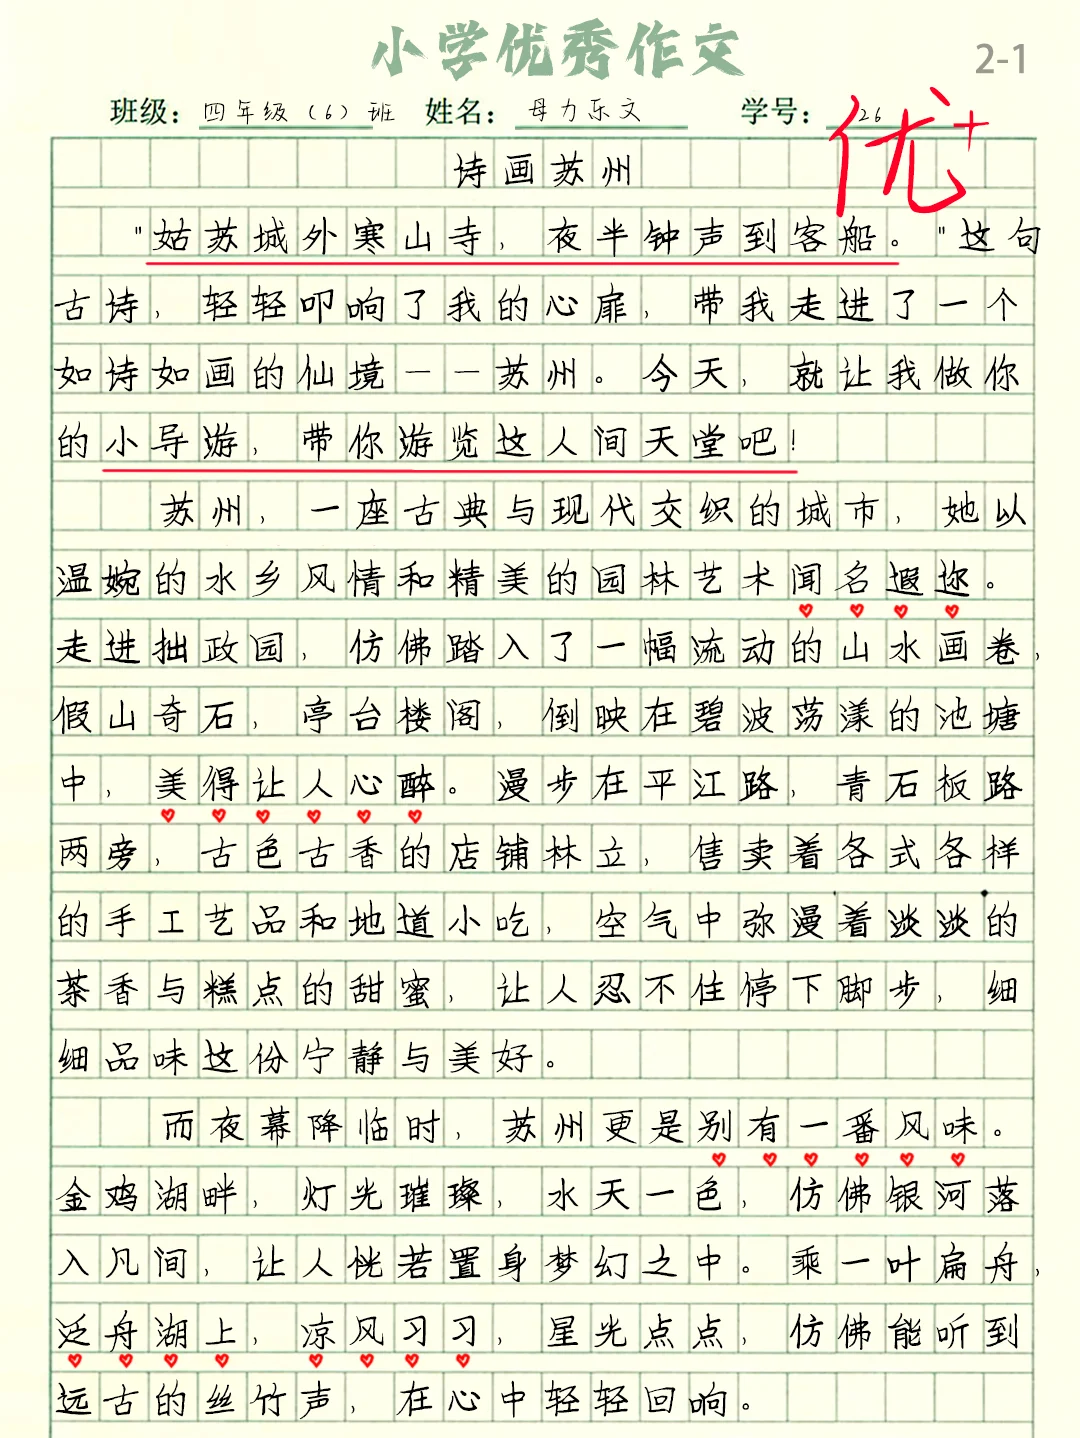 小学优秀作文
2-1
班级：四年级（6）班 姓名：母力乐文 学号：26
优+
诗画苏州
"姑苏城外寒山寺，夜半钟声到客船。"这句
古诗，轻轻叩响了我的心扉，带我走进了一个
如诗如画的仙境——苏州。今天，就让我做你
的小导游，带你游览这人间天堂吧！
苏州，一座古典与现代交织的城市，她以
温婉的水乡风情和精美的园林艺术闻名遐迩。
走进拙政园，仿佛踏入了一幅流动的山水画卷，
假山奇石，亭台楼阁，倒映在碧波荡漾的池塘
中，美得让人心醉。漫步在平江路，青石板路
两旁，古色古香的店铺林立，售卖着各式各样
的手工艺品和地道小吃，空气中弥漫着淡淡的
茶香与糕点的甜蜜，让人忍不住停下脚步，细
细品味这份宁静与美好。
而夜幕降临时，苏州更是别有一番风味。
金鸡湖畔，灯光璀璨，水天一色，仿佛银河落
入凡间，让人恍若置身梦幻之中。乘一叶扁舟，
泛舟湖上，凉风习习，星光点点，仿佛能听到
远古的丝竹声，在心中轻轻回响。